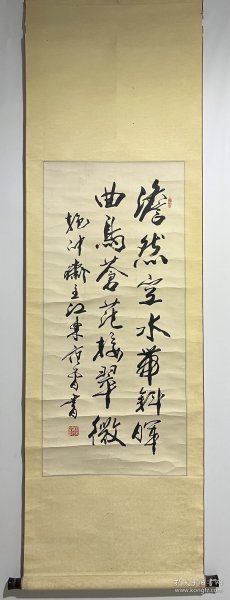 澹然空水带斜晖
曲岛苍茫接翠微
抱冲斋主江东范曾书
孔夫子旧书网